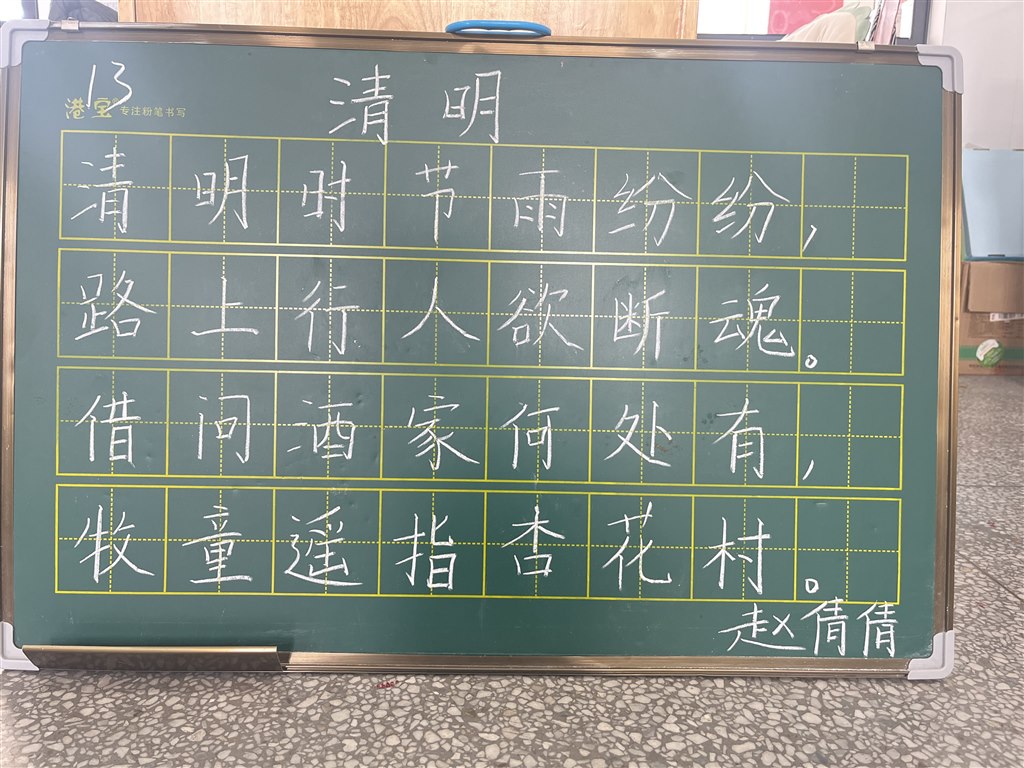 13
港宝 专注粉笔书写
清明
清明时节雨纷纷,
路上行人欲断魂。
借问酒家何处有,
牧童遥指杏花村。
赵倩倩